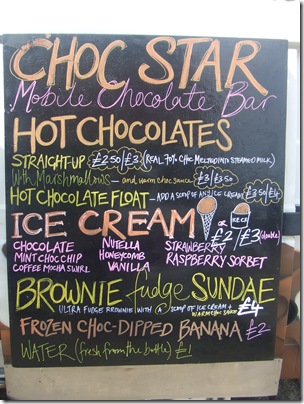 CHOC STAR
Mobile Chocolate Bar
HOT CHOCOLATES
STRAIGHT-UP £2.50/£3 (REAL 70% CHOC MELTED INTO STEAMED MILK)
With Marshmallows - and warm choc sauce £3/£3.50
HOT CHOCOLATE FLOAT - ADD A SCOOP OF ANY ICE CREAM £3.50/£4
ICE CREAM OR
£2/£3 (double)
CHOCOLATE NUTELLA STRAWBERRY
MINT CHOC CHIP HONEYCOMB RASPBERRY SORBET
COFFEE MOCHA SWIRL VANILLA
BROWNIE fudge SUNDAE
ULTRA FUDGE BROWNIE WITH A SCOOP OF ICE CREAM + WARM CHOC SAUCE £4
FROZEN CHOC-DIPPED BANANA £2
WATER (fresh from the bottle) £1